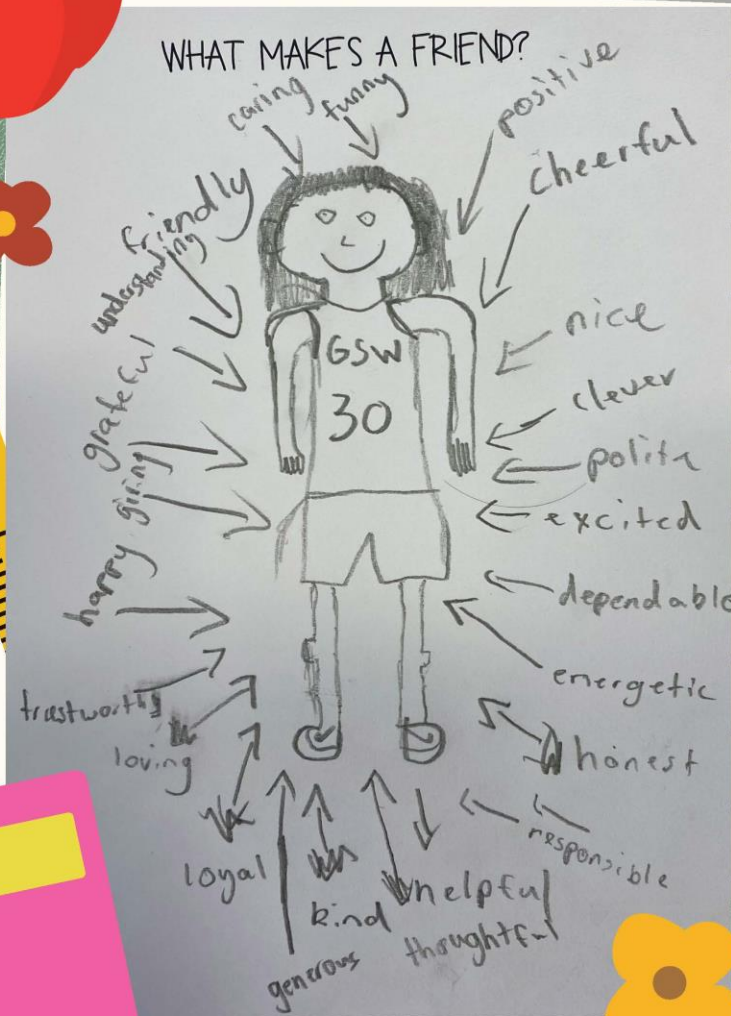 WHAT MAKES A FRIEND?
caring
funny
positive
cheerful
friendly
understanding
grateful
giving
happy
trustworthy
loving
loyal
generous
kind
helpful
thoughtful
responsible
honest
energetic
dependable
excited
polite
clever
nice
GSW
30